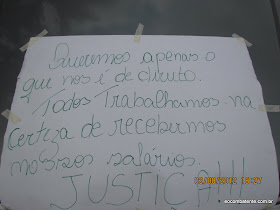 Queremos apenas o
que nos é de direito.
Todos Trabalhamos na
certeza de recebermos
nossos salários.
JUSTIÇA!!!
ecocombatente.com.br